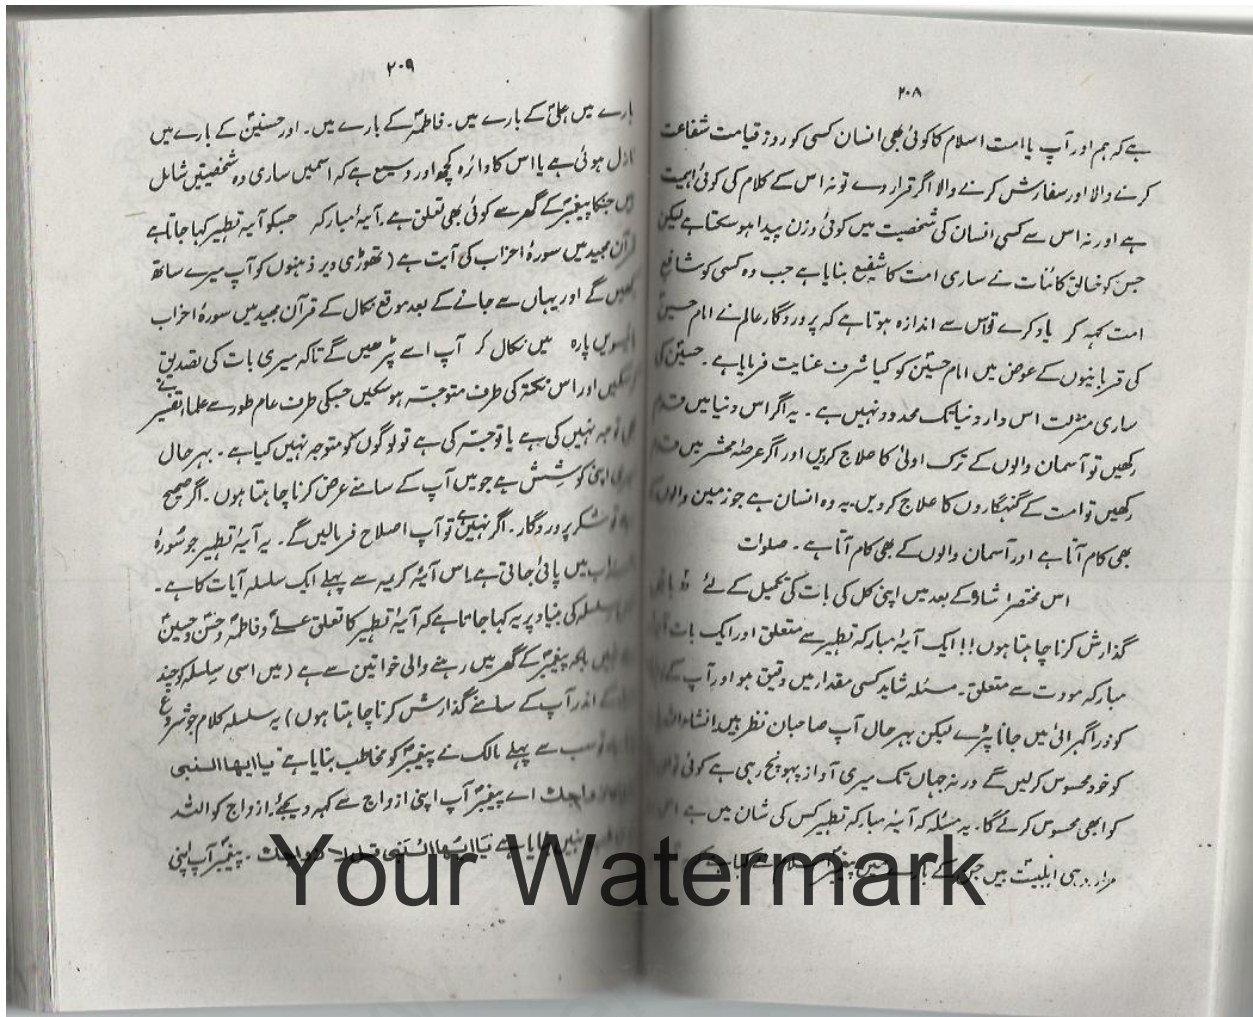 ۲۰۸
ہے کہ ہم اور آپ یا امت اسلام کا کوئی بھی انسان کسی کو روز قیامت شفاعت
کرنے والا اور سفارش کرنے والا اگر قرار دے تو نہ اس کے کلام کی کوئی اہمیت
ہے اور نہ اس سے کسی انسان کی شخصیت میں کوئی وزن پیدا ہو سکتا ہے لیکن
جس کو خالق کائنات نے ساری امت کا شفیع بنایا ہے جب وہ کسی کو شافع
امت کہہ کر یاد کرے تو اس سے اندازہ ہوتا ہے کہ پروردگار عالم نے امام حسینؑ
کی قربانیوں کے عوض میں امام حسینؑ کو کیا شرف عنایت فرمایا ہے۔ حسینؑ کی
ساری منزلت اس دار دنیا تک محدود نہیں ہے۔ یہ اگر اس دنیا میں قدم
رکھیں تو آسمان والوں کے ترک اولیٰ کا علاج کردیں اور اگر عرصۂ محشر میں قدم
رکھیں تو امت کے گنہگاروں کا علاج کردیں۔ یہ وہ انسان ہے جو زمین والوں کے
بھی کام آتا ہے اور آسمان والوں کے بھی کام آتا ہے۔ صلوات
اس مختصر اشارہ کے بعد میں اپنی کل کی بات کی تکمیل کے لئے دو باتیں
گذارش کرنا چاہتا ہوں!! ایک آیۂ مبارکہ تطہیر سے متعلق اور ایک بات آیۂ
مبارکہ مودت سے متعلق۔ مسئلہ شاید کسی مقدار میں دقیق ہو اور آپ کے
کو ذرا گہرائی میں جانا پڑے لیکن بہر حال آپ صاحبان نظر ہیں انشاء اللہ
کو خود محسوس کرلیں گے ورنہ جہاں تک میری آواز پہونچ رہی ہے کوئی
کو ابھی محسوس کرئے گا۔ یہ مسئلہ کہ آیۂ مبارکہ تطہیر کس کی شان میں ہے اس
مراد وہی اہلبیتؑ ہیں جن کے بارے میں پیغمبر اسلام نے
۲۰۹
بارے میں علیؑ کے بارے میں۔ فاطمہؑ کے بارے میں۔ اور حسنینؑ کے بارے میں
نازل ہوئی ہے یا اس کا دائرہ کچھ اور وسیع ہے کہ اسمیں ساری وہ شخصیتیں شامل
ہیں جنکا پیغمبرؐ کے گھر سے کوئی بھی تعلق ہے۔ آیۂ مبارکہ جسکو آیۂ تطہیر کہا جاتا ہے
قرآن مجید میں سورۂ احزاب کی آیت ہے (تھوڑی دیر ذہنوں کو آپ میرے ساتھ
رکھیں گے اور یہاں سے جانے کے بعد موقع نکال کے قرآن مجید میں سورۂ احزاب
پارہ میں نکال کر آپ اسے پڑھیں گے تاکہ میری بات کی تصدیق
کرسکیں اور اس نکتہ کی طرف متوجہ ہو سکیں جسکی طرف عام طور سے علماء تفسیر نے
توجہ نہیں کی ہے یا توجہ کی ہے تو لوگوں کو متوجہ نہیں کیا ہے۔ بہر حال
میری اپنی کوشش ہے جو میں آپ کے سامنے عرض کرنا چاہتا ہوں۔ اگر صحیح
ہے تو شکر پروردگار۔ اگر نہیں ہے تو آپ اصلاح فرمالیں گے۔ یہ آیۂ تطہیر جو سورۂ
احزاب میں پائی جاتی ہے اس آیۂ کریمہ سے پہلے ایک سلسلہ آیات کا ہے۔
سلسلہ کی بنیاد پر یہ کہا جاتا ہے کہ آیۂ تطہیر کا تعلق علیؑ و فاطمہؑ و حسنؑ و حسینؑ
سے نہیں بلکہ پیغمبرؐ کے گھر میں رہنے والی خواتین سے ہے (میں اسی سلسلہ کو چند
کے اندر آپ کے سامنے گذارش کرنا چاہتا ہوں) یہ سلسلہ کلام جو شروع
ہوا تو سب سے پہلے مالک نے پیغمبرؐ کو مخاطب بنایا ہے یا ایھا النبی
قل لازواجک اے پیغمبرؐ آپ اپنی ازواج سے کہہ دیجئے۔ ازواج کو اللہ
نہیں بنایا ہے یا ایھا النبی قل لازواجک۔ پیغمبرؐ آپ اپنی
Your Watermark